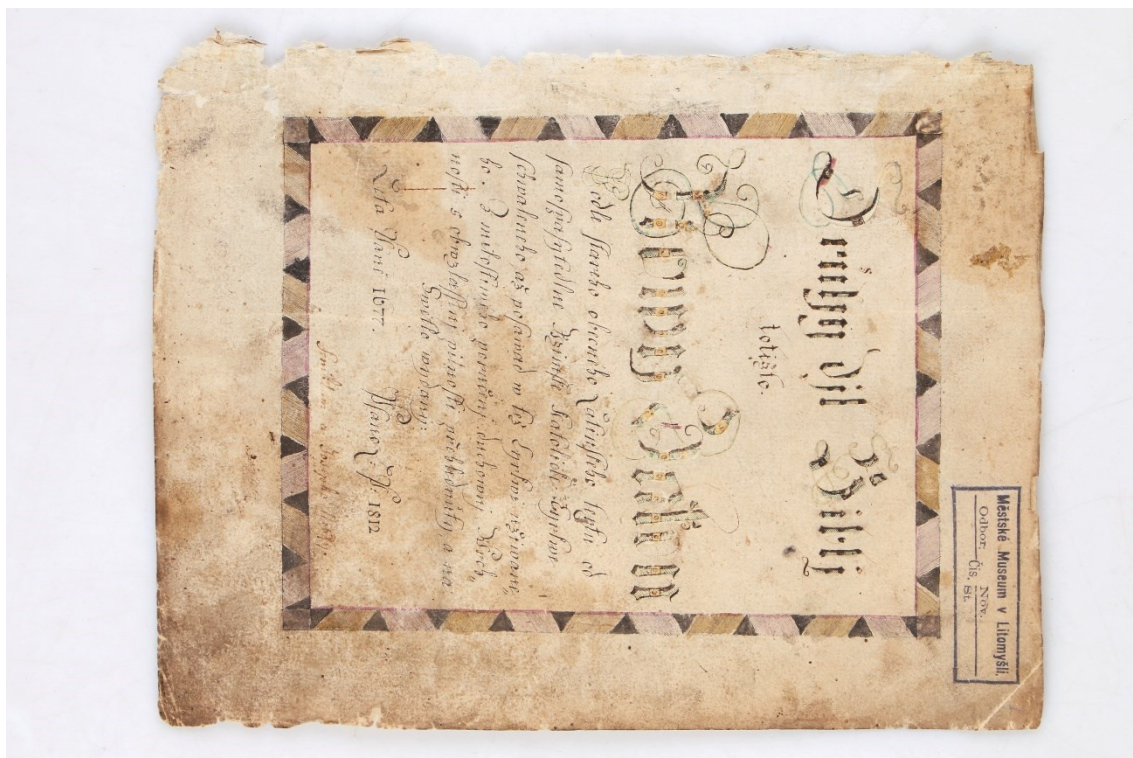 Městské Museum v Litomyšli.
Odbor: Nov.
Čís. St.
Druhy djl Biblij
totižto.
Nowy Zakon
Podle stareho obecneho Latinskeho textu od
samospasytedlne Rzimske Katolicke Cyrkwe
schwaleneho až posawad w též Cyrkwi užiwane„
ho. Z milostiweho poručenj duchownj Wrch„
nosti s obzlasstnj pilnosti přehlednuty, a na
Swětlo wydany:
Léta Páně 1677. Psano L. P. 1812